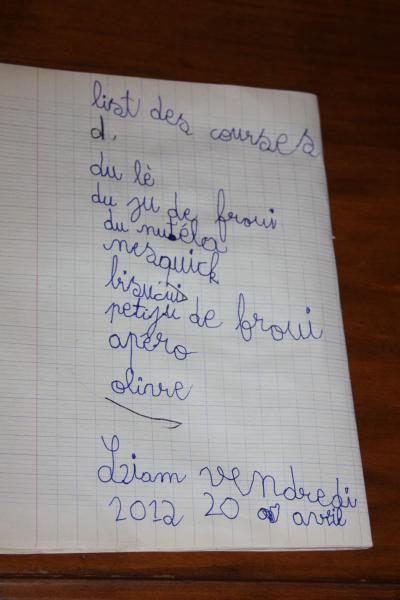 list des courses
d.
du lè
du ju de froui
du nutéla
nesquick
biscui
petiju de froui
apéro
olivre
vendredi
2012 20 avril